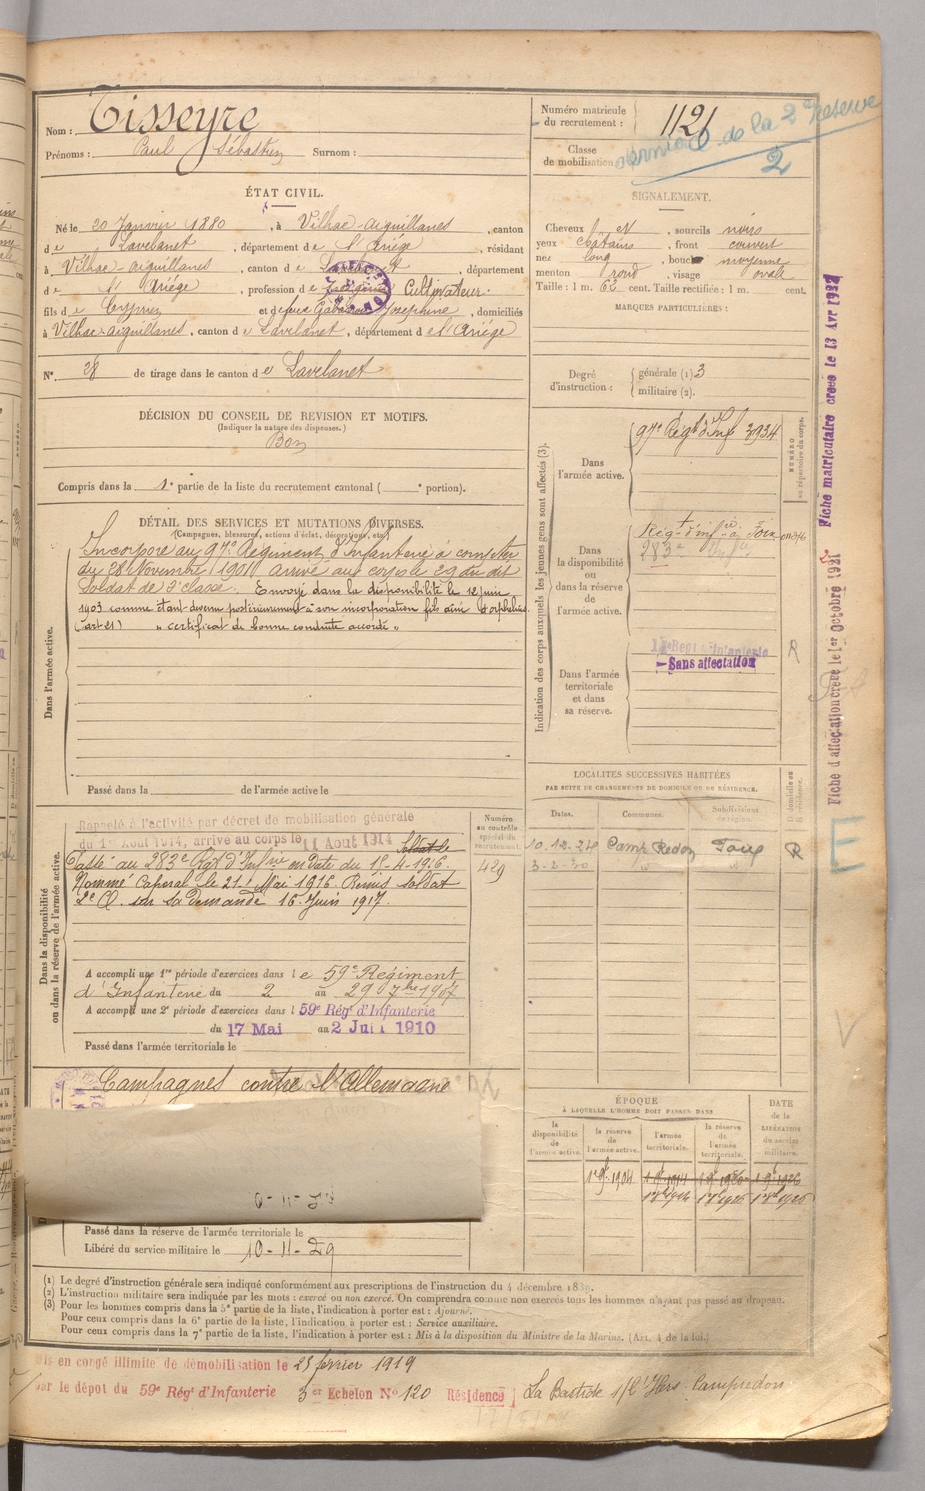 Nom : Tisseyre
Prénoms : Paul Sébastien Surnom :
Numéro matricule du recrutement : 1121
Classe de mobilisation
de la 2e Réserve
2
ÉTAT CIVIL.
Né le 20 Janvier 1880, à Vilhac-aiguillanes, canton
de Lavelanet, département de l'Ariège, résidant
à Vilhac-aiguillanes, canton de Lavelanet, département
de l'Ariège, profession de Cultivateur.
fils de Cyprien et de feue Joséphine, domiciliés
à Vilhac-aiguillanes, canton de Lavelanet, département de l'Ariège
N° 28 de tirage dans le canton de Lavelanet
SIGNALEMENT.
Cheveux N, sourcils noirs
yeux chatains, front couvert
nez long, bouche moyenne
menton rond, visage ovale
Taille : 1 m. 62 cent. Taille rectifiée : 1 m. cent.
MARQUES PARTICULIÈRES :
Degré d'instruction : générale (1) 3
militaire (2).
DÉCISION DU CONSEIL DE REVISION ET MOTIFS.
(Indiquer la nature des dispenses.)
Bon
Compris dans la 1e partie de la liste du recrutement cantonal ( e portion).
DÉTAIL DES SERVICES ET MUTATIONS DIVERSES.
(Campagnes, blessures, actions d'éclat, décorations, etc.)
Dans l'armée active.
Incorporé au 97e Régiment d'Infanterie à compter
du 28 Novembre 1901 arrivé au corps le 29 du dit
Soldat de 2e classe. Envoyé dans la disponibilité le 12 juin
1903 comme étant devenu postérieurement à son incorporation fils aîné d'orphelins.
(art 21) " certificat de bonne conduite accordé "
Passé dans la de l'armée active le
Indication des corps auxquels les jeunes gens sont affectés (3).
Dans l'armée active.
97e Régt d'Inf 3934
NUMÉRO au répertoire du corps.
Dans la disponibilité ou dans la réserve de l'armée active.
Régt d'infrie à Foix
283e
Dans l'armée territoriale et dans sa réserve.
Sans affectation
R
Fiche matriculaire créée le 13 Avr 1932
Fiche d'affectation créée le 1er Octobre 1931
LOCALITÉS SUCCESSIVES HABITÉES
PAR SUITE DE CHANGEMENTS DE DOMICILE OU DE RÉSIDENCE.
Dates. Communes. Subdivisions de région. Domicile ou résidence.
10.12.24 Camp Redon Foix R
E
V
Dans la disponibilité ou dans la réserve de l'armée active.
Rappelé à l'activité par décret de mobilisation générale
du 1er Août 1914, arrivé au corps le 11 Aout 1914
Passé au 283e Rgt d'Infrie en date du 15-4-1916.
Nommé Caporal le 21 Mai 1916. Remis soldat
2e Cl. sur sa demande 16 Juin 1917.
Numéro au contrôle spécial du recrutement.
429
A accompli une 1re période d'exercices dans le 59e Régiment
d'Infanterie du 2 au 29 7bre 1907
A accompli une 2e période d'exercices dans l 59e Régt d'Infanterie
du 17 Mai au 2 Juin 1910
Passé dans l'armée territoriale le
Campagnes contre l'Allemagne
ÉPOQUE
À LAQUELLE L'HOMME DOIT PASSER DANS
la disponibilité de l'armée active.
la réserve de l'armée active.
l'armée territoriale.
la réserve de l'armée territoriale.
DATE de la LIBÉRATION du service militaire.
Passé dans la réserve de l'armée territoriale le
Libéré du service militaire le 10-11-29
(1) Le degré d'instruction générale sera indiqué conformément aux prescriptions de l'instruction du 4 décembre 1889.
(2) L'instruction militaire sera indiquée par les mots : exercé ou non exercé. On comprendra comme non exercés tous les hommes n'ayant pas passé au drapeau.
(3) Pour les hommes compris dans la 5e partie de la liste, l'indication à porter est : Ajourné.
Pour ceux compris dans la 6e partie de la liste, l'indication à porter est : Service auxiliaire.
Pour ceux compris dans la 7e partie de la liste, l'indication à porter est : Mis à la disposition du Ministre de la Marine. (Art. 4 de la loi.)
en congé illimité de démobilisation le 25 février 1919
par le dépôt du 59e Régt d'Infanterie 3er Echelon N° 120 Résidence La Bastide s/l'Hers Campredon